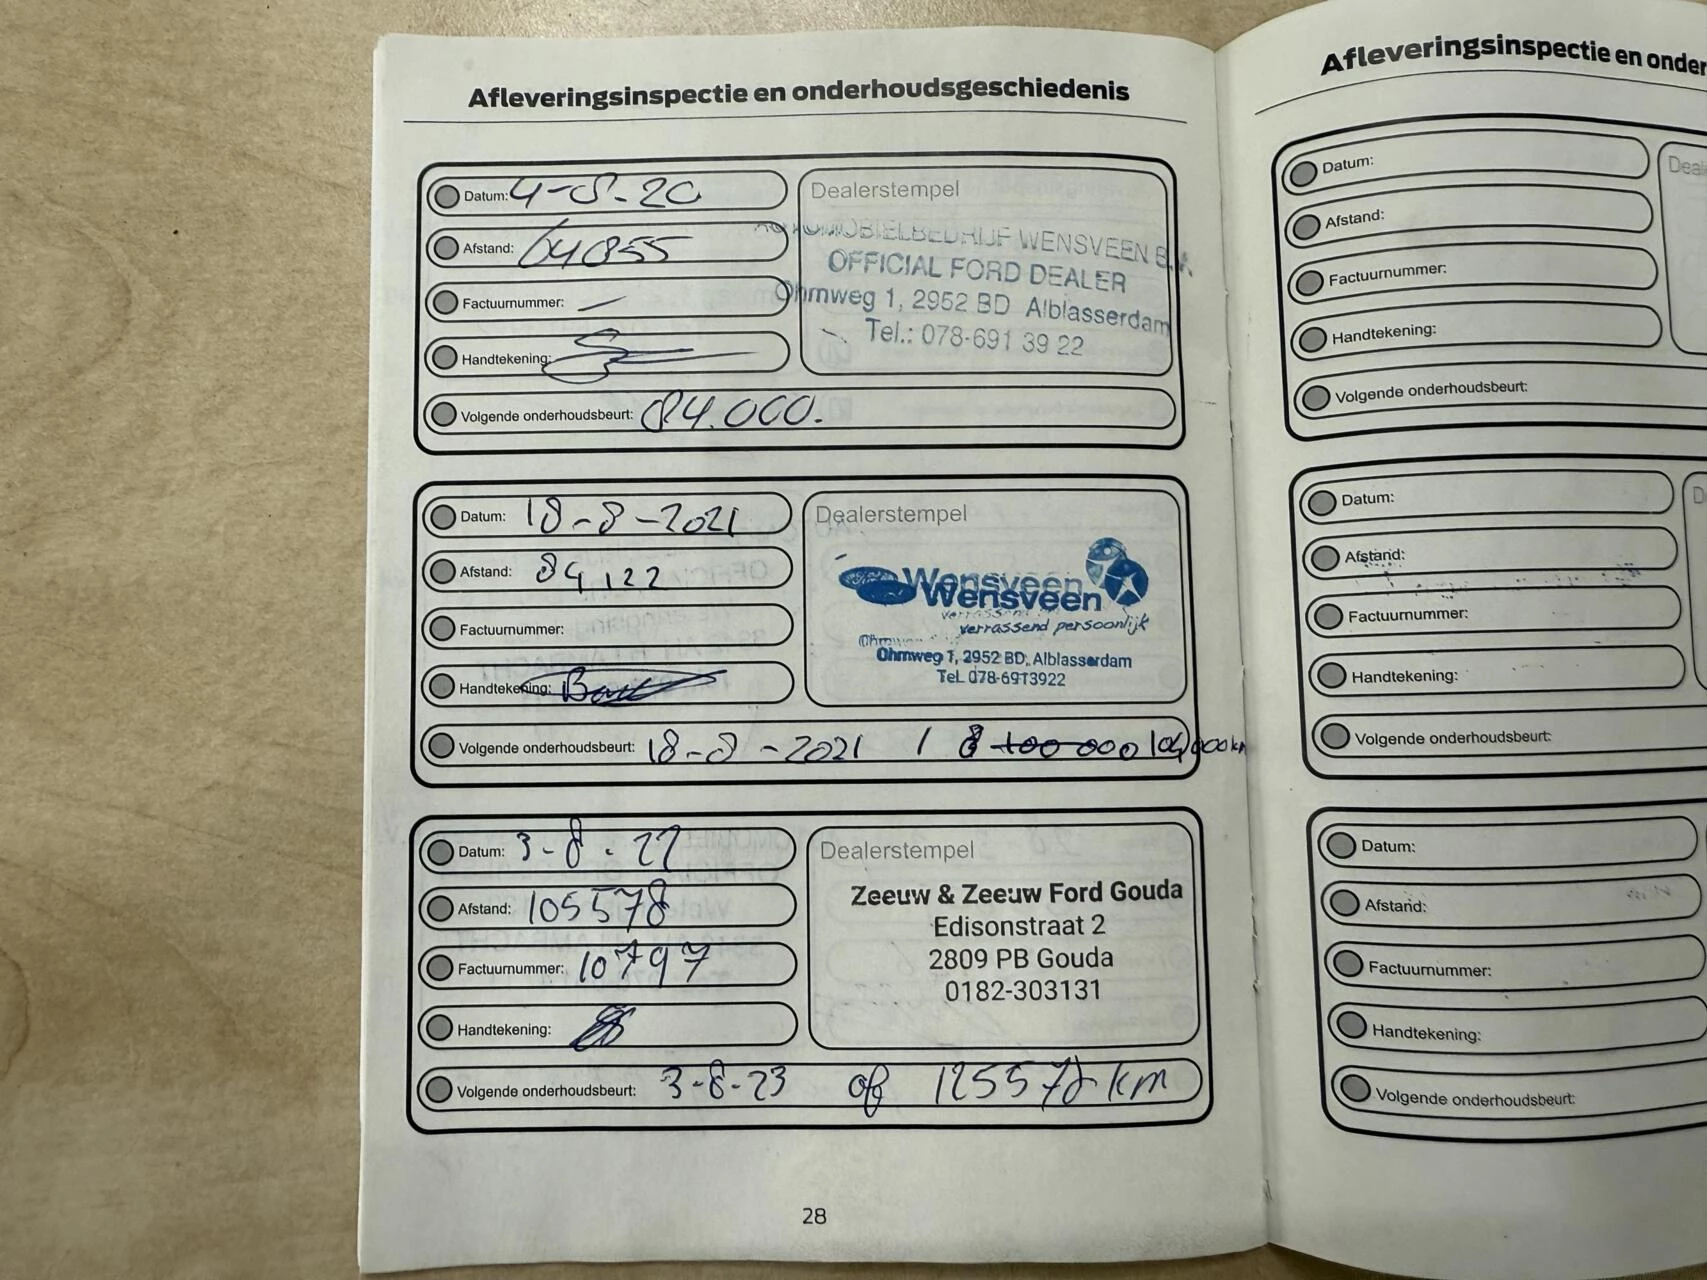 Afleveringsinspectie en onderhoudsgeschiedenis
Datum: 4-8-20
Afstand: 64855
Factuurnummer: —
Handtekening:
Volgende onderhoudsbeurt: 84.000.
Dealerstempel
AUTOMOBIELBEDRIJF WENSVEEN B.V.
OFFICIAL FORD DEALER
Ohmweg 1, 2952 BD Alblasserdam
Tel.: 078-691 39 22
Datum: 18-8-2021
Afstand: 84122
Factuurnummer:
Handtekening:
Volgende onderhoudsbeurt: 18-8-2021 / 104,000km
Dealerstempel
Wensveen
Wensveen
verrassend persoonlijk
Ohmweg 1, 2952 BD, Alblasserdam
Tel. 078-6913922
Datum: 3-8-22
Afstand: 105578
Factuurnummer: 10797
Handtekening:
Volgende onderhoudsbeurt: 3-8-23 of 125578 km
Dealerstempel
Zeeuw & Zeeuw Ford Gouda
Edisonstraat 2
2809 PB Gouda
0182-303131
28
Afleveringsinspectie en onder
Datum:
Afstand:
Factuurnummer:
Handtekening:
Volgende onderhoudsbeurt:
Deal
Datum:
Afstand:
Factuurnummer:
Handtekening:
Volgende onderhoudsbeurt:
D
Datum:
Afstand:
Factuurnummer:
Handtekening:
Volgende onderhoudsbeurt: